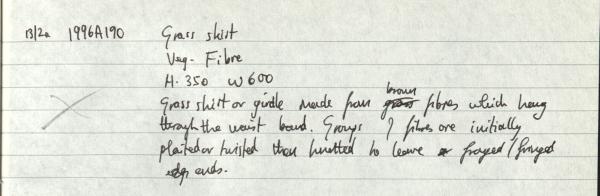 B/2a 1996A190 Grass skirt
Veg. Fibre
H. 350 W 600
Grass skirt or girdle made from brown fibres which hang
through the waist band. Groups of fibres are initially
plaited or twisted then knotted to leave frayed / fringed
ends.